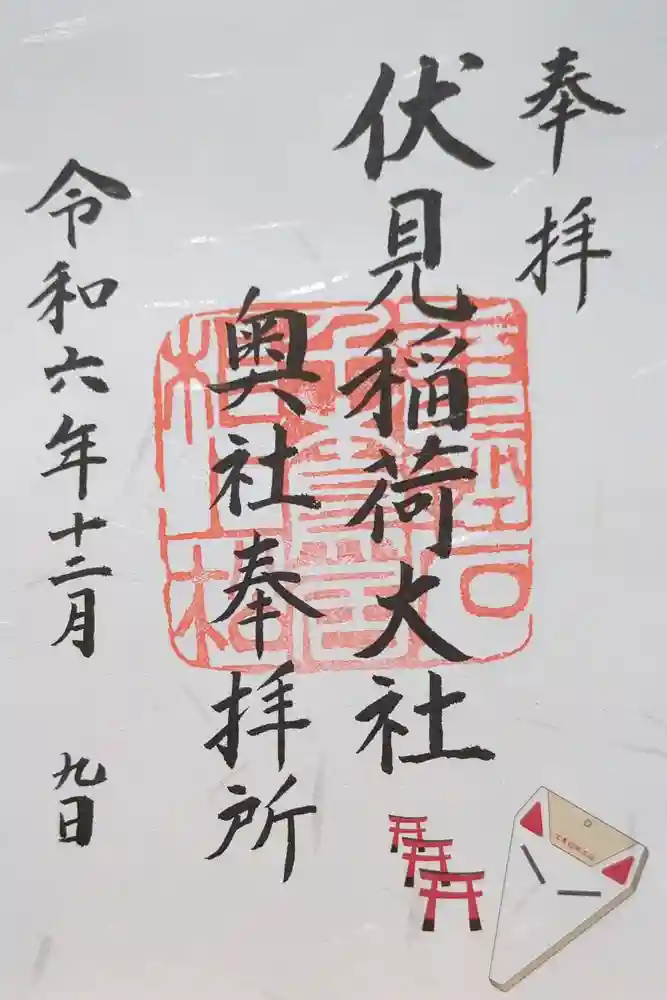 奉拝
伏見稲荷大社
奥社奉拝所
令和六年十二月 九日